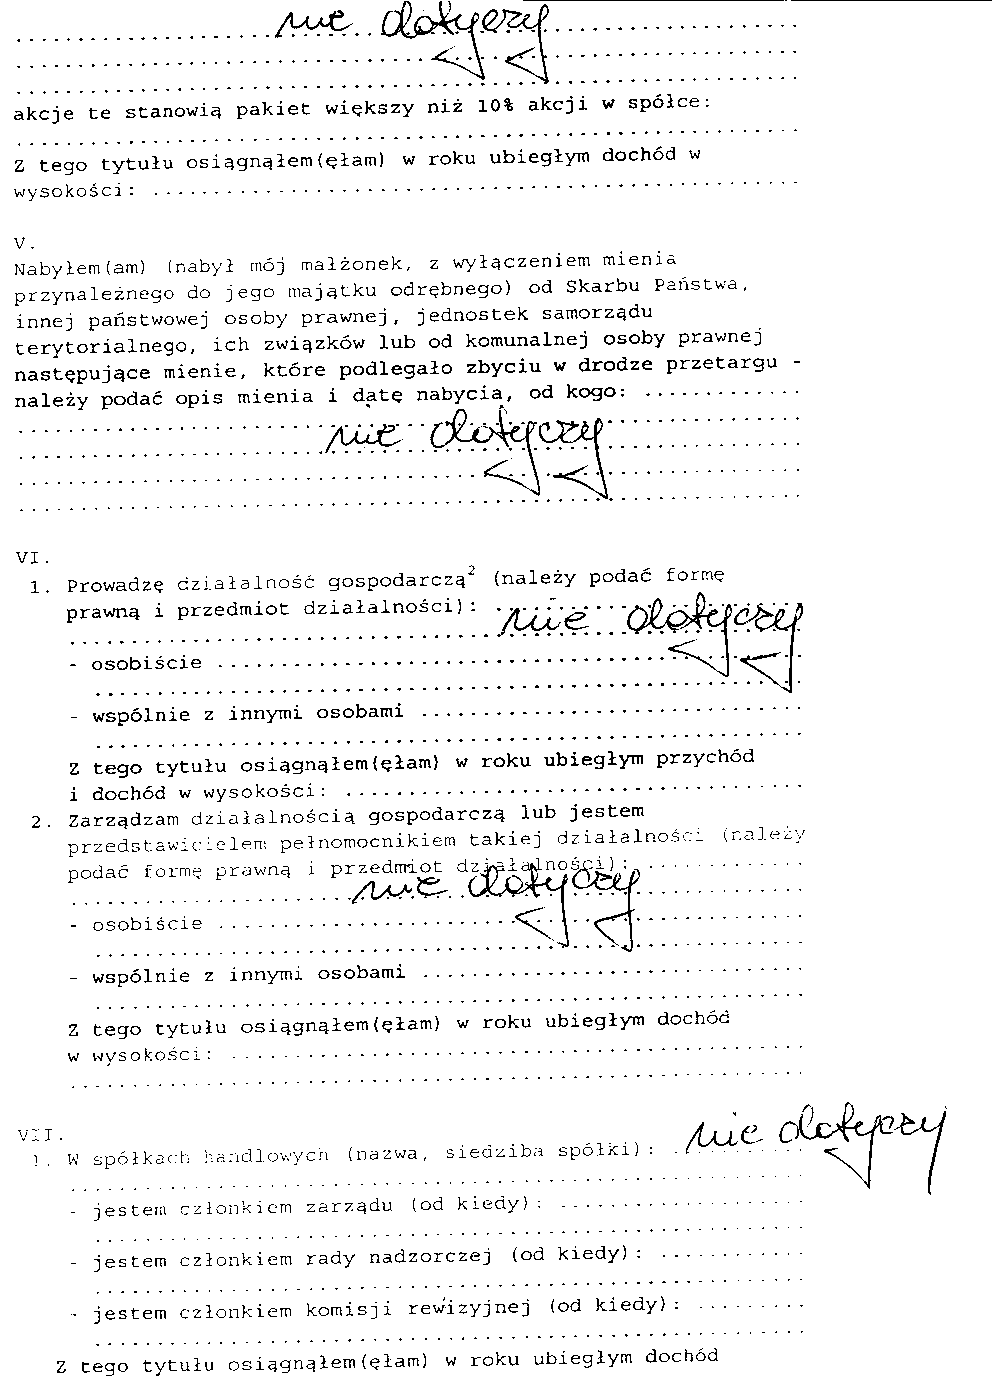 nie dotyczy
akcje te stanowią pakiet większy niż 10% akcji w spółce:
Z tego tytułu osiągnąłem(ęłam) w roku ubiegłym dochód w
wysokości: ............................................................
V.
Nabyłem(am) (nabył mój małżonek, z wyłączeniem mienia
przynależnego do jego majątku odrębnego) od Skarbu Państwa,
innej państwowej osoby prawnej, jednostek samorządu
terytorialnego, ich związków lub od komunalnej osoby prawnej
następujące mienie, które podlegało zbyciu w drodze przetargu -
należy podać opis mienia i datę nabycia, od kogo: .............
nie dotyczy
VI.
1. Prowadzę działalność gospodarczą² (należy podać formę
prawną i przedmiot działalności): nie dotyczy
- osobiście ................................................
- wspólnie z innymi osobami ................................
Z tego tytułu osiągnąłem(ęłam) w roku ubiegłym przychód
i dochód w wysokości: ......................................
2. Zarządzam działalnością gospodarczą lub jestem
przedstawicielem pełnomocnikiem takiej działalności (należy
podać formę prawną i przedmiot działalności): ..............
nie dotyczy
- osobiście ................................................
- wspólnie z innymi osobami ................................
Z tego tytułu osiągnąłem(ęłam) w roku ubiegłym dochód
w wysokości: ...............................................
VII.
1. W spółkach handlowych (nazwa, siedziba spółki): nie dotyczy
- jestem członkiem zarządu (od kiedy): .....................
- jestem członkiem rady nadzorczej (od kiedy): .............
- jestem członkiem komisji rewizyjnej (od kiedy): .........
Z tego tytułu osiągnąłem(ęłam) w roku ubiegłym dochód